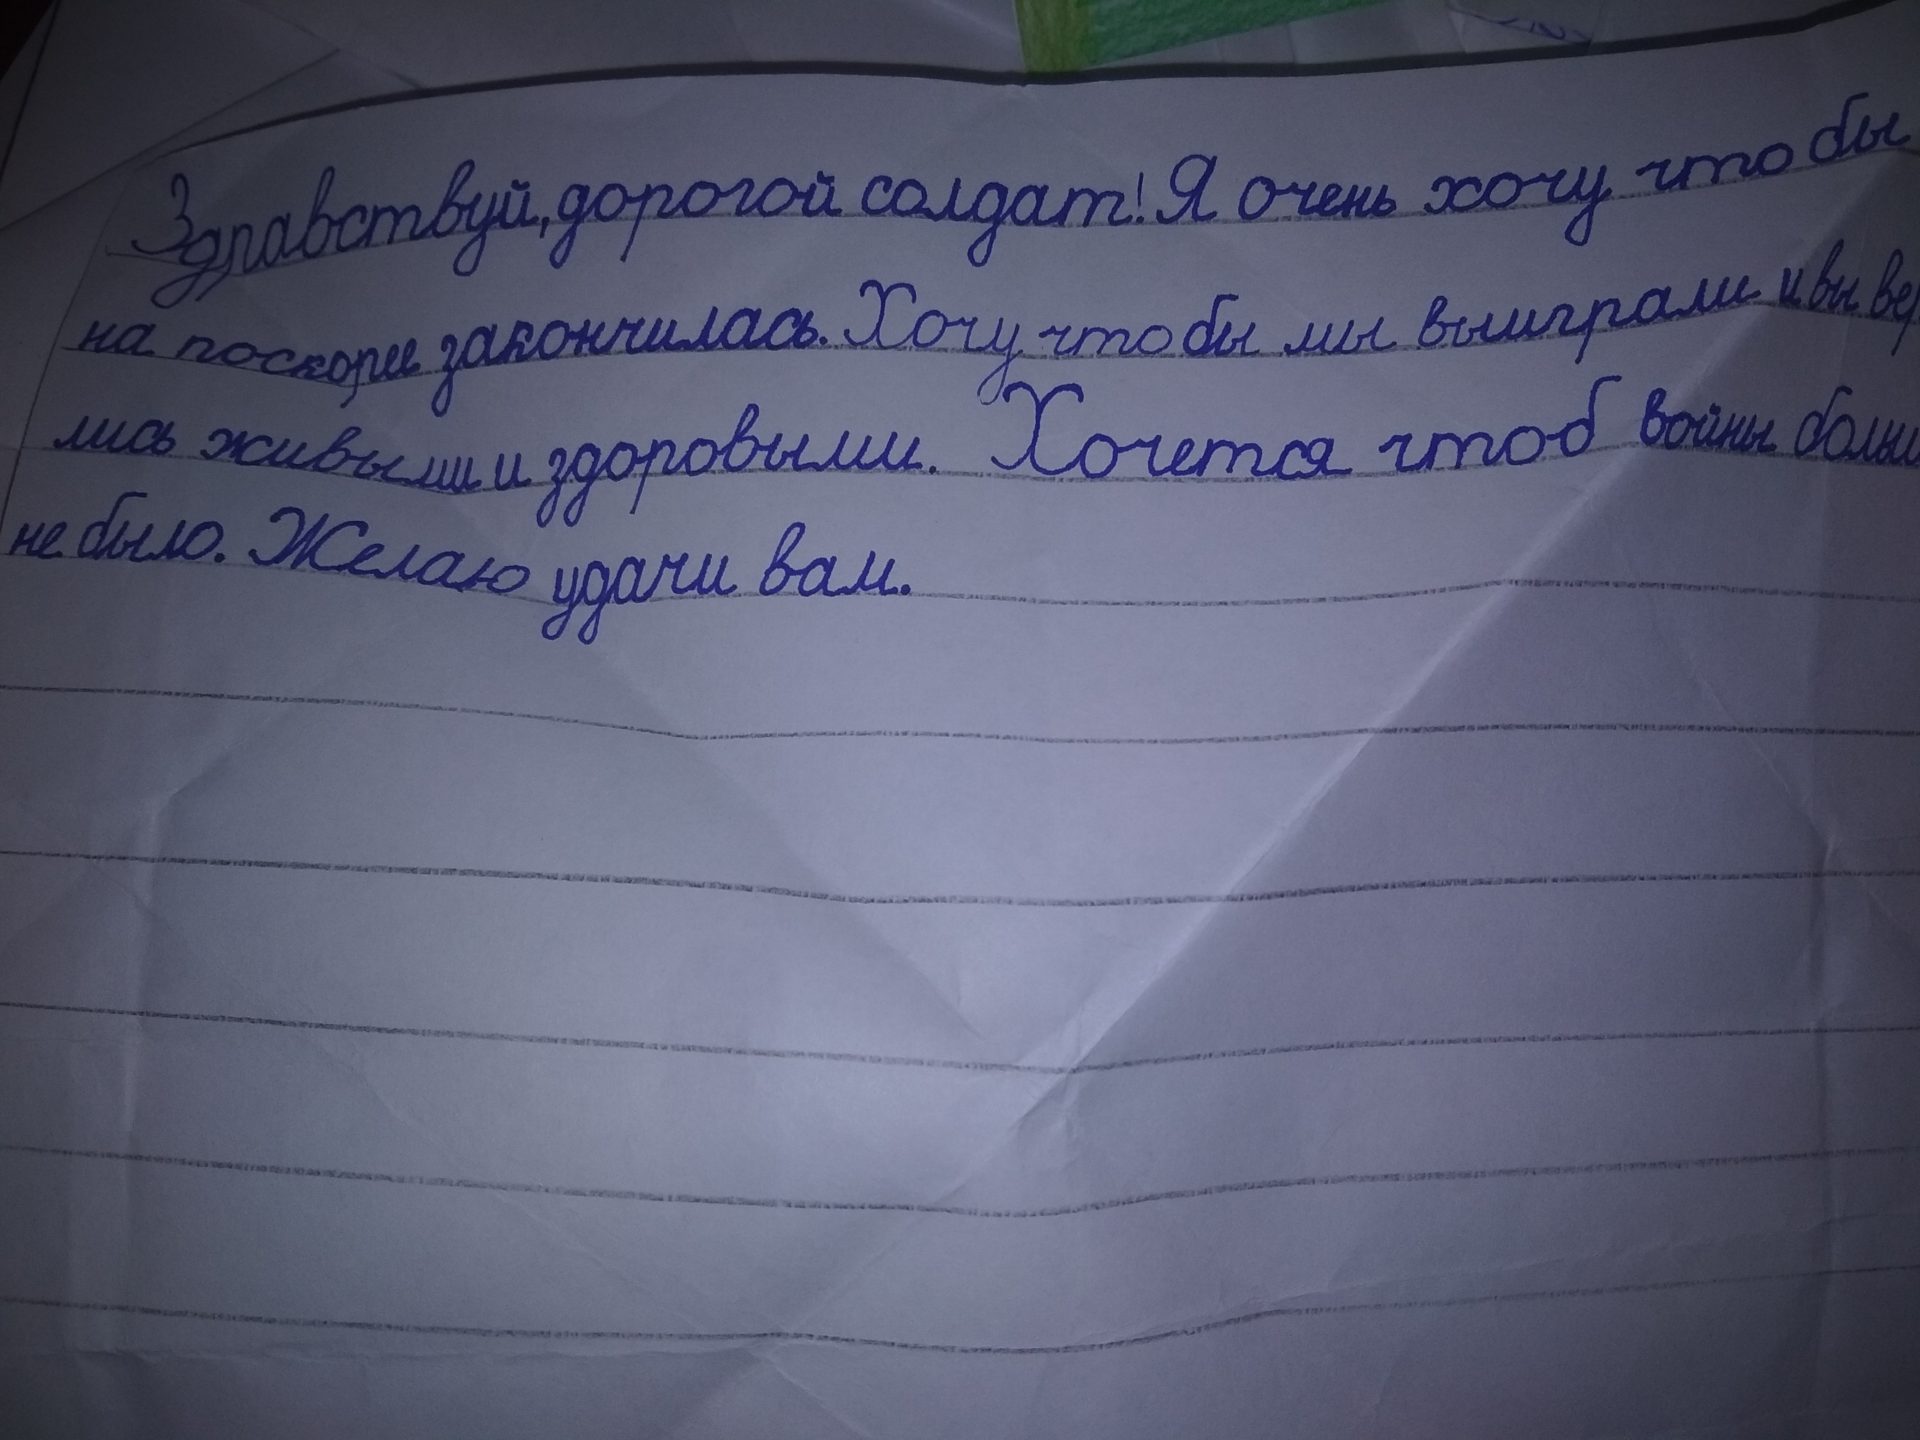 Здравствуй, дорогой солдат! Я очень хочу что бы
на поскорее закончилась. Хочу что бы мы выиграли и вы вер
лись живыми и здоровыми. Хочется чтоб войны больш
не было. Желаю удачи вам.